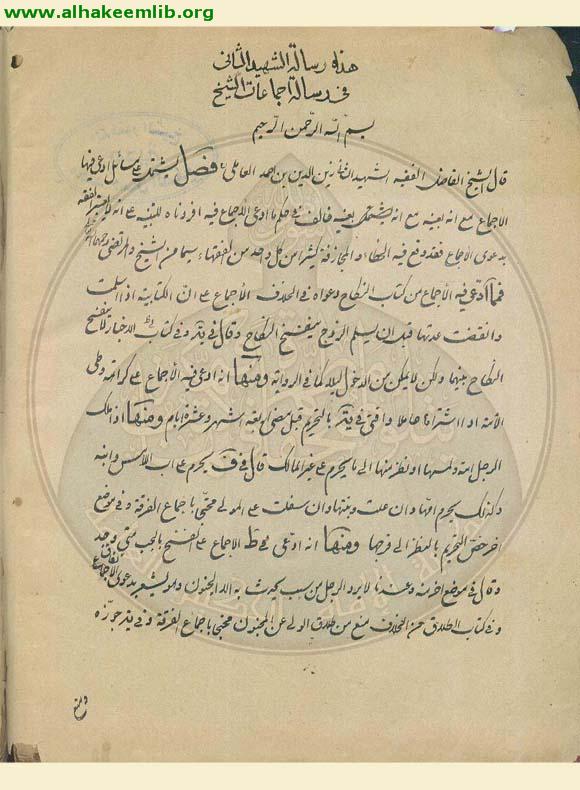 www.alhakeemlib.org
هذه رسالة الشهيد الثاني
في رسالة اجماعات الشيخ
بسم الله الرحمن الرحيم
قال الشيخ الفاضل الفقيه الشهيد الثاني زين الدين بن احمد العاملي فصل يشتمل على مسائل ادعى فيها
الاجماع مع انه بعينه خالف في حكم ما ادعى الاجماع فيه افردناه للتنبيه على انه لا يغتر الفقيه
بدعوى الاجماع فقد وقع فيه الخطاء والمجازفة كثيرا من كل واحد من الفقهاء سيما من الشيخ والمرتضى رحمهما الله
فما ادعى فيه الاجماع من كتاب النكاح دعواه في الخلاف الاجماع على ان الكتابية اذا اسلمت
وانقضت عدتها قبل ان يسلم الزوج ينفسخ النكاح وقال في يه وفي كتاب الاخبار لا ينفسخ
النكاح بينهما ولكن لا يمكن من الدخول ليلا كما في الرواية ومنها انه ادعى فيه الاجماع على كراهة وطى
الامة اذا اشتراها حاملا وافتى في يه بالتحريم قبل مضى اربعة اشهر وعشرة ايام ومنها اذا ملك
الرجل امة ولمسها او نظر منها الى ما يحرم على غير المالك قال في ف يحرم على اب اللامس وابنه
وكذلك يحرم امها وان علت وبنتها وان سفلت على المولى محتجا باجماع الفرقة وفي موضع
اخر خص التحريم بالنظر الى فرجها ومنها انه ادعى في ط الاجماع على الفسخ بالجب متى وجد
وقال في موضع اخر منه وعندنا لا يرد الرجل من عيب يحدث به الا الجنون وهو يشعر بدعوى الاجماع
وفي كتاب الطلاق من الخلاف منع من طلاق الولى عن المجنون محتجا باجماع الفرقة وفي يه جوزه